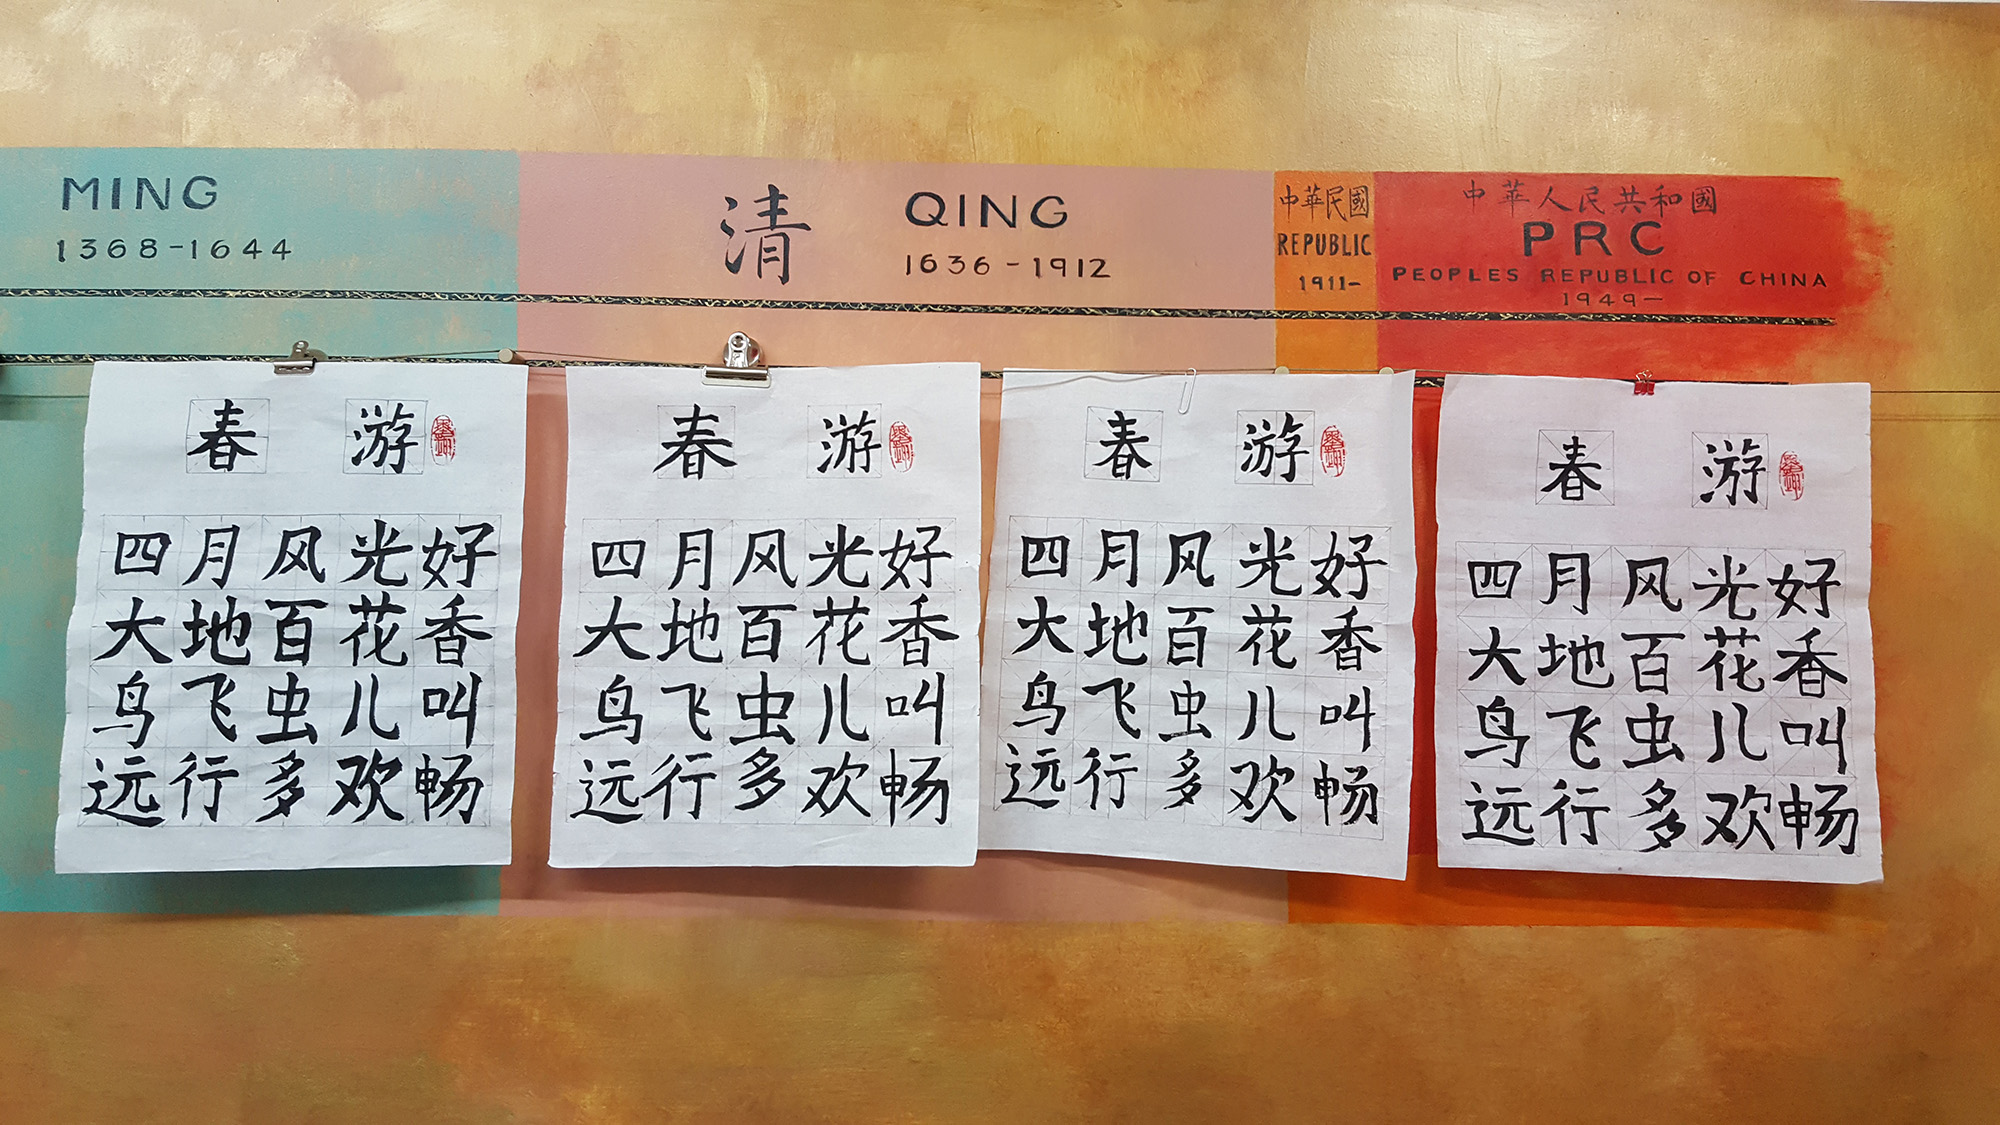 MING
1368-1644
清
QING
1636-1912
中華民國
REPUBLIC
1911-
中華人民共和國
PRC
PEOPLES REPUBLIC OF CHINA
1949-
春 游
四月风光好
大地百花香
鸟飞虫儿叫
远行多欢畅
春 游
四月风光好
大地百花香
鸟飞虫儿叫
远行多欢畅
春 游
四月风光好
大地百花香
鸟飞虫儿叫
远行多欢畅
春 游
四月风光好
大地百花香
鸟飞虫儿叫
远行多欢畅